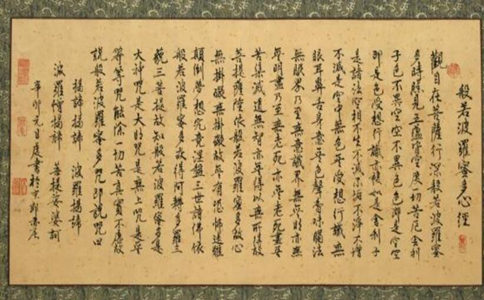 般若波羅蜜多心經
觀自在菩薩行深般若波羅蜜
多時照見五蘊皆空度一切苦厄舍利
子色不異空空不異色色即是空空
即是色受想行識亦復如是舍利子
是諸法空相不生不滅不垢不淨不增
不減是故空中無色無受想行識無
眼耳鼻舌身意無色聲香味觸法
無眼界乃至無意識界無無明亦無
無明盡乃至無老死亦無老死盡無
苦集滅道無智亦無得以無所得故
菩提薩埵依般若波羅蜜多故心
無掛礙無掛礙故無有恐怖遠離
顛倒夢想究竟涅槃三世諸佛依
般若波羅蜜多故得阿耨多羅三
藐三菩提故知般若波羅蜜多是
大神咒是大明咒是無上咒是無
等等咒能除一切苦真實不虛故
說般若波羅蜜多咒即說咒曰
揭諦揭諦 波羅揭諦
波羅僧揭諦 菩提娑婆訶
辛卯元月 書於